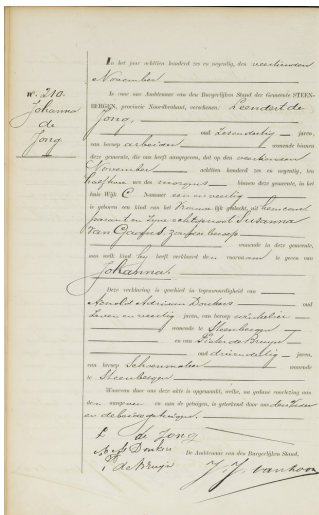 No. 210.
Johanna
de
Jong
In het jaar achttien honderd zes en negentig, den veertienden
November
is voor ons Ambtenaar van den Burgerlijken Stand der Gemeente STEEN-
BERGEN, provincie Noordbrabant, verschenen: Leendert de
Jong,
oud jaren,
van beroep arbeider, wonende binnen
deze gemeente, die ons heeft aangegeven, dat op den
November achttien honderd zes en negentig, ten
half ure des morgens binnen deze gemeente, in het
huis Wijk C Nommer een en veertig
is geboren een kind van het Vrouwelijk geslacht, uit hem
en zijne echtgenoot Susanna
van zonder beroep
wonende in deze gemeente,
aan welk kind hij heeft verklaard den voornaam te geven van
Johanna.
Deze verklaring is geschied in tegenwoordigheid van
Arnold Adriaan Donkers oud
zeven en veertig jaren, van beroep winkelier
wonende te Steenbergen
en van Pieter de Bruijn
oud drie en dertig jaren,
van beroep Schoenmaker wonende
te Steenbergen
Waarvan door ons deze akte is opgemaakt, welke, na gedane voorlezing aan
den aangever en aan de getuigen, is geteekend door ons den Vader
en de beide getuigen.
L de Jong
A A Donkers
P de Bruijn
De Ambtenaar van den Burgerlijken Stand,
J. J. van Loon